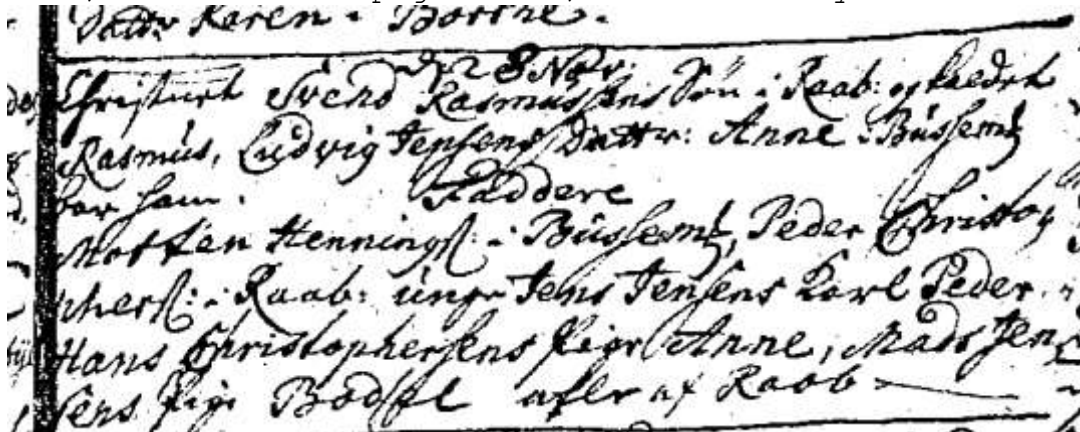 Dattr Karen i Borrhe.
d 8 Nov:
Christnet Svend Rasmussens Søn i Raab: og kaldet
Rasmus, Ludvig Jepsens Dattr: Anne i Bussem
bar ham. Faddere
Morten Hennings: i Bussem, Peder Christo
phers: i Raab: unge Jens Jensens Karl Peder.
Hans Christophersens Pige Anne, Mads Jen
sens Pige Bodel af Raab